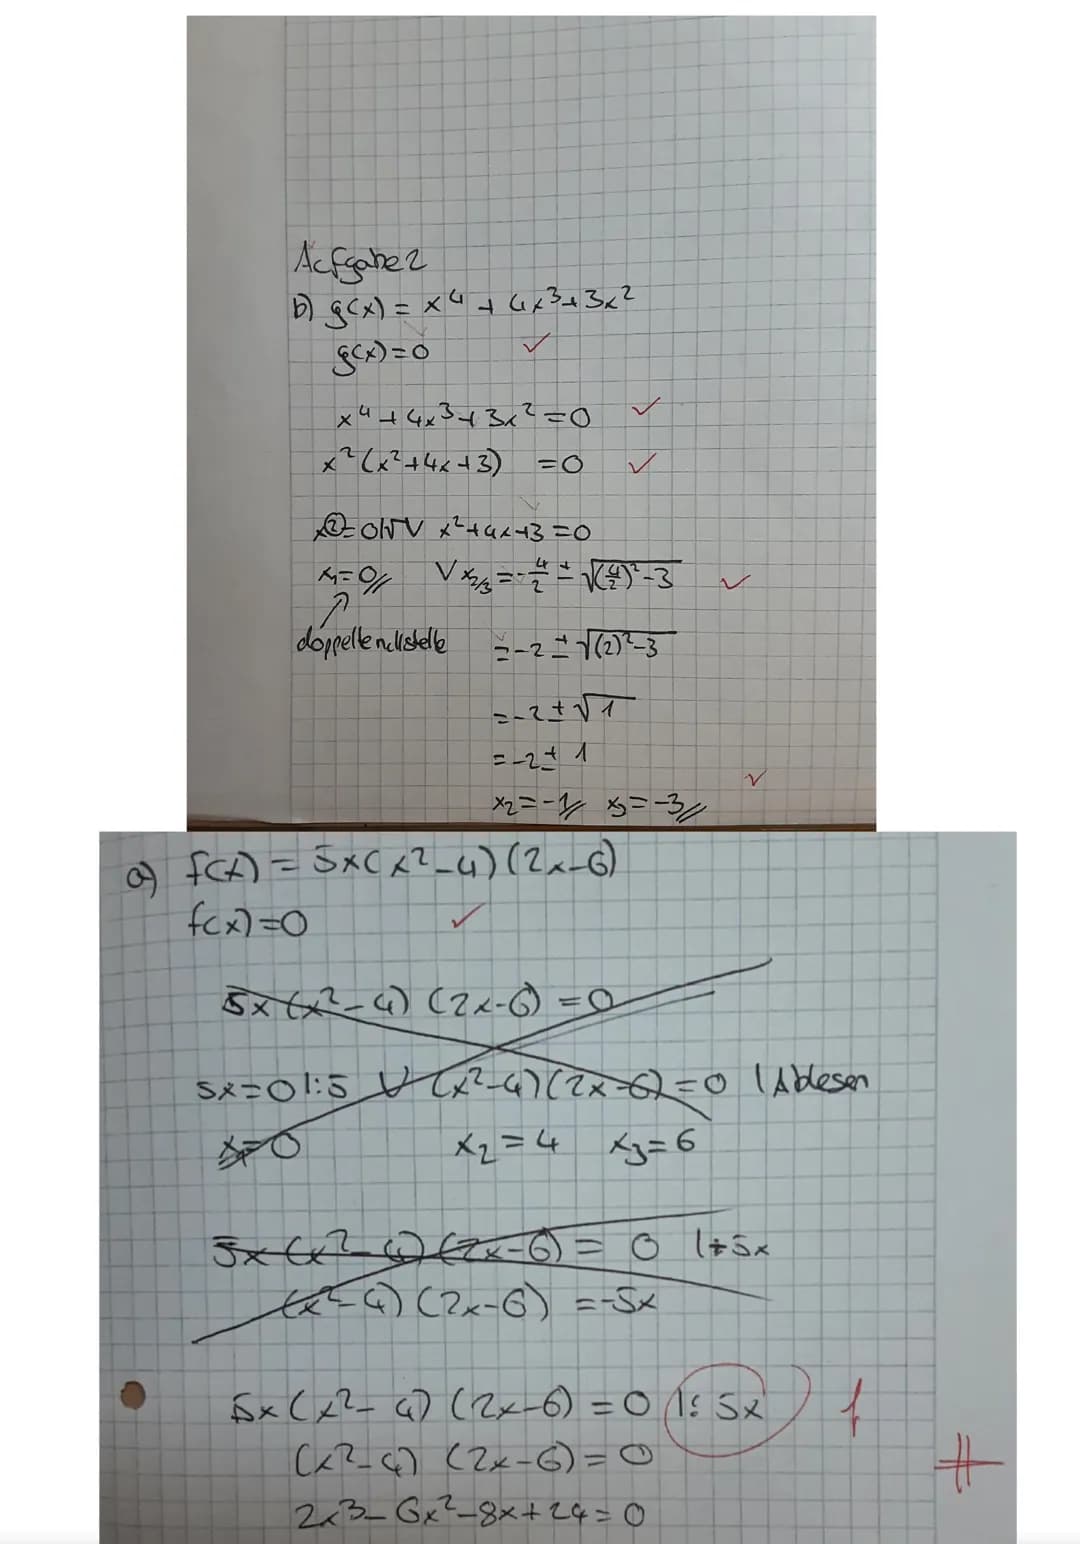 Aufgabe 2
b) g(x) = x⁴ + 4x³ + 3x²
g(x) = 0
x⁴ + 4x³ + 3x² = 0
x²(x² + 4x + 3) = 0
x² = 0 |√ V x² + 4x + 3 = 0
x₁ = 0 V x₂/₃ = -4/2 ± √((4/2)² - 3)
doppelte nullstelle = -2 ± √((2)² - 3)
= -2 ± √1
= -2 ± 1
x₂ = -1 x₃ = -3
a) f(x) = 5x(x² - 4)(2x - 6)
f(x) = 0
5x(x² - 4)(2x - 6) = 0
5x = 0 |:5 V (x² - 4)(2x - 6) = 0 | Ablesen
x₁ = 0 x₂ = 4 x₃ = 6
5x(x² - 4)(2x - 6) = 0 |+5x
(x² - 4)(2x - 6) = -5x
5x(x² - 4)(2x - 6) = 0 |: 5x f
(x² - 4)(2x - 6) = 0
2x³ - 6x² - 8x + 24 = 0